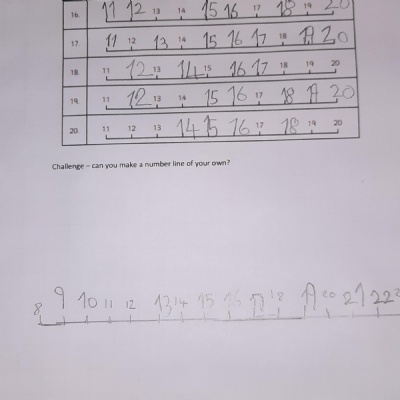 16. 11 12 13 14 15 16 17 18 19 20
17. 11 12 13 14 15 16 17 18 19 20
18. 11 12 13 14 15 16 17 18 19 20
19. 11 12 13 14 15 16 17 18 19 20
20. 11 12 13 14 15 16 17 18 19 20
Challenge – can you make a number line of your own?
8 9 10 11 12 13 14 15 16 17 18 19 20 21 22